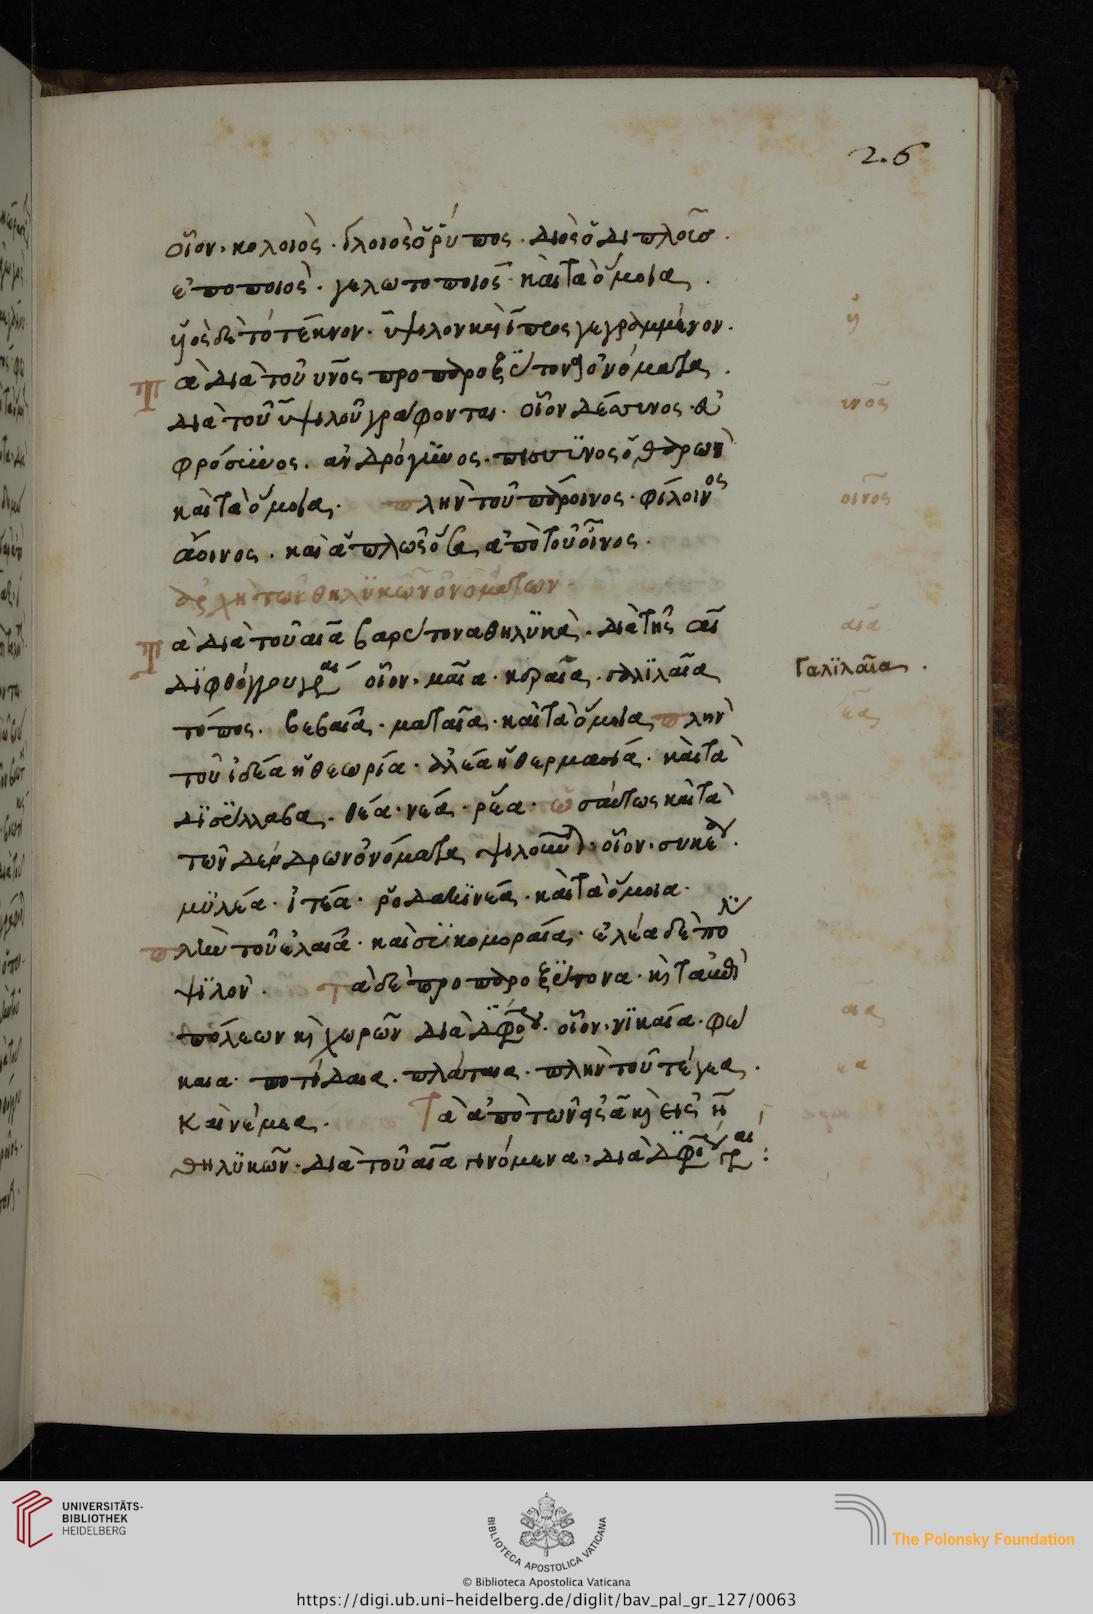 2.6
οἷον· κολοιὸς · γλοιὸς ὁ ῥύπος · διὸς ὁ διπλοῦσ .
ἐποποιὸς · γελωτοποιὸς · καὶ τὰ ὅμοια .
υἱὸς δὲ τὸ τέκνον · ϋψιλον καὶ ϊ προσγεγραμμένον .
Τὰ διὰ τοῦ υνος προπαροξύτονα ὀνόματα .
διὰ τοῦ ϋψιλοῦ γράφονται · οἷον δέσπυνος · εὐ
φρόσϋνος . ἀνδρόγϋνος . πίσυνος ὁ θαρρῶν
καὶ τὰ ὅμοια . πλὴν τοῦ πάροινος · φίλοινος
ἄοινος . καὶ ἁπλῶς ὅσα ἀπὸ τοῦ οἶνος .
ἀρχὴ τῶν θηλϋκῶν ὀνομάτων .
Τὰ διὰ τοῦ αια βαρύτονα θηλϋκὰ . διὰ τῆς αι
δϊφθόγγου γρ οἷον · μαῖα · κεραῖα . γαλϊλαῖα
τόπος . βεβαῖα . ματαῖα . καὶ τὰ ὅμοια πλὴν
τοῦ ἰδέα ἡ θεωρία · ἀλέα ἡ θερμασία . καὶ τὰ
δϊσΰλλαβα . θέα · νέα · ῥέα . ὡσαύτως καὶ τὰ
τῶν δένδρων ὀνόματα ψιλοῦνται · οἷον · συκέα .
μϋλέα · ἰτέα · ῥοδακϊνέα . καὶ τὰ ὅμοια .
πλὴν τοῦ ἐλαία . καὶ σϋκομοραία · ἐλέα δὲ πολϋ
ψϊλὸν . Τὰ δὲ προπαροξΰτονα · καὶ τὰ ἐπὶ
πόλεων καὶ χωρῶν διὰ δϊφθόγγου · οἷον · νϊκαία . φω
καια · ποτίδαια . πλάταια . πλὴν τοῦ τέγεα .
καὶ νέμεα . Τὰ ἀπὸ τῶν εἰς α καὶ εἰς η
θηλϋκῶν . διὰ τοῦ αια γινόμενα , διὰ δϊφθόγγου γρ αι :
υἱ
υνος
οινος
αια
Γαλϊλαῖα .
εα
αια
εα
UNIVERSITÄTS-
BIBLIOTHEK
HEIDELBERG
BIBLIOTECA APOSTOLICA VATICANA
The Polonsky Foundation
© Biblioteca Apostolica Vaticana
https://digi.ub.uni-heidelberg.de/diglit/bav_pal_gr_127/0063